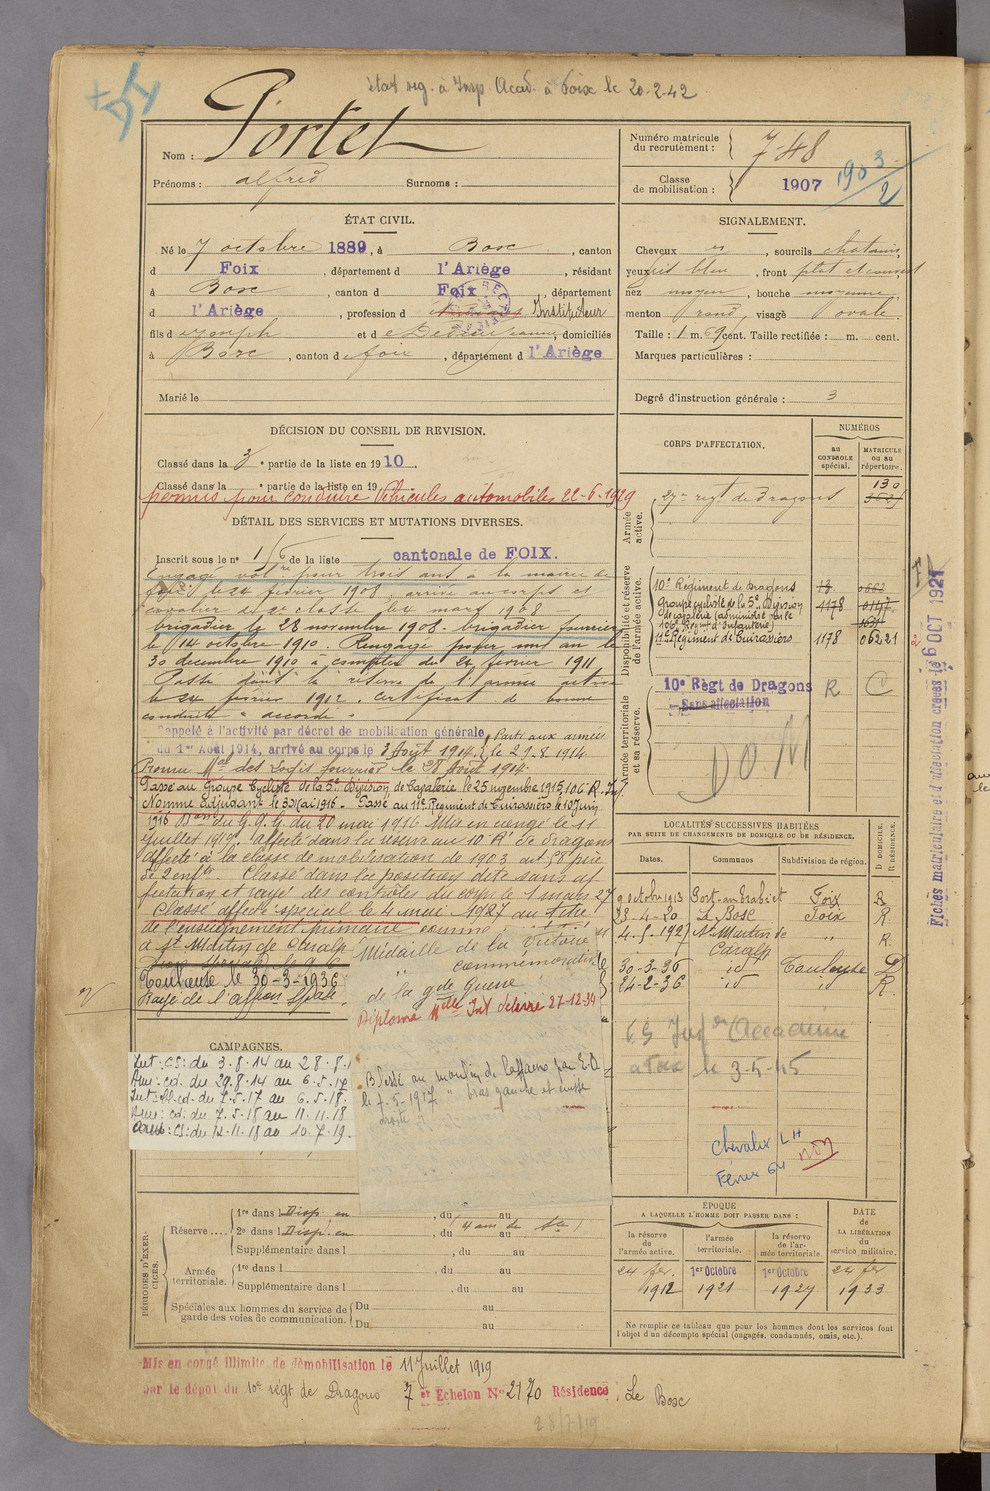 état sig. à Insp. Acad. à Foix le 20-2-42
+ DI
Nom : Portet
Prénoms : alfred Surnoms :
Numéro matricule du recrutement : 748
Classe de mobilisation : 1907
1903/2
ÉTAT CIVIL.
Né le 7 octobre 1889, à Bosc, canton
d Foix, département d l'Ariège, résidant
à Bosc, canton d Foix, département
d l'Ariège, profession d Instituteur
fils d Joseph et d Jeanne, domiciliés
à Bosc, canton d Foix, département d l'Ariège
Marié le
SIGNALEMENT.
Cheveux es, sourcils chatains,
yeux bleu, front plat et
nez moyen, bouche moyenne,
menton rond, visage ovale.
Taille : 1 m. 69 cent. Taille rectifiée : m. cent.
Marques particulières :
Degré d'instruction générale : 3
DÉCISION DU CONSEIL DE REVISION.
Classé dans la 3e partie de la liste en 1910.
Classé dans la e partie de la liste en 19
permis pour conduire Véhicules automobiles 22-6-1929
DÉTAIL DES SERVICES ET MUTATIONS DIVERSES.
Inscrit sous le n° 16 de la liste cantonale de FOIX.
Engagé volre pour trois ans à la mairie de
Foix le 24 février 1908, arrivé au corps et
cavalier de 2e classe le 4 mars 1908
brigadier le 23 novembre 1908. brigadier fourrier
le 14 octobre 1910. Rengagé pour un an le
30 décembre 1910 à compter du 24 février 1911
Passé dans la réserve de l'armée active
le 24 février 1912. Certificat de bonne
conduite "accordé".
Rappelé à l'activité par décret de mobilisation générale Parti aux armées
du 1er Août 1914, arrivé au corps le 3 Août 1914. le 29.8.1914
Promu Mal des Logis fourrier le 28 Août 1914.
Passé au Groupe Cycliste de la 5e Division de Cavalerie le 25 novembre 1915, 106 R. Inf
Nommé Adjudant le 30 Mai 1916. Passé au 11e Régiment de Cuirassiers le 10 Juin
1916 Don du G.Q.G. du 20 mai 1916 Mis en congé le 11
juillet 1919. affecté dans la réserve au 10e Rt de dragons
affecté à la classe de mobilisation de 1903 art 58 père
de 2 enfts. Classé dans la position dite sans af
fectation et rayé des contrôles du corps le 1 mars 27
Classé affecté spécial le 4 mai 1927 au titre
de l'enseignement primaire comme
à St Martin de Caralp
Toulouse le 30-3-1936
Rayé de l'affon Spale.
Médaille de la Victoire
" commémorative
de la gde guerre
Diplôme Mdlle Int délivré 27-12-34
Blessé au moulin de Laffaux par E.O.
le 7.5.1917. " bras gauche et cuisse
droite ".
CORPS D'AFFECTATION.
NUMÉROS
au CONTRÔLE spécial.
MATRICULE ou au répertoire.
Armée active.
27me régt de Dragons 130
Disponibilité et réserve de l'armée active.
10e Régiment de Dragons
Groupe cycliste de la 5e Division de cavalerie (administré par le 106e Régimt d'Infanterie) 1178
11e Régiment de Cuirassiers 1178 06221
Armée territoriale et sa réserve.
10e Règt de Dragons R C
Sans affectation
D.O.M
Fiches matriculaire et d'affectation créées le 6 OCT 1921
LOCALITÉS SUCCESSIVES HABITÉES
PAR SUITE DE CHANGEMENTS DE DOMICILE OU DE RÉSIDENCE.
Dates. Communes Subdivision de région. D. DOMICILE. R. RÉSIDENCE.
9 octobre 1913 Foix R
23-4-20 Le Bosc Foix R
4-5-1927 St Martin de Caralp " R.
30-3-36 id Toulouse D
24-2-36 id id R.
Foix le 3-5-45
Chevalier LH
Février 64
non
CAMPAGNES.
Int : CS : du 3.8.14 au 28.8.1
Am : cd. du 29.8.14 au 6.5.17
Int : Bl. cd. du 7.5.17 au 6.5.18.
Am : cd : du 7.5.18 au 11.11.18
CS : du 12.11.18 au 10.7.19.
PÉRIODES D'EXERCICES.
Réserve.... 1re dans l Disp. en , du au
2e dans l Disp. en , du (4 ans de Sce) au
Supplémentaire dans l , du au
Armée territoriale. 1re dans l , du au
Supplémentaire dans l , du au
Spéciales aux hommes du service de garde des voies de communication. Du au
Du au
ÉPOQUE
A LAQUELLE L'HOMME DOIT PASSER DANS :
la réserve de l'armée active. l'armée territoriale. la réserve de l'armée territoriale.
DATE DE LA LIBÉRATION du service militaire.
24 fev. 1912 1er Octobre 1921 1er Octobre 1927 24 fev 1933
Ne remplir ce tableau que pour les hommes dont les services font
l'objet d'un décompte spécial (engagés, condamnés, omis, etc.).
Mis en congé illimité de démobilisation le 11 Juillet 1919
par le dépôt du 10e régt de Dragons 7 e Échelon N° 2170 Résidence : Le Bosc
28/7/19